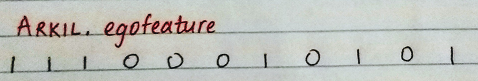 ARKIL. egofeature
1 1 1 0 0 0 1 0 1 0 1